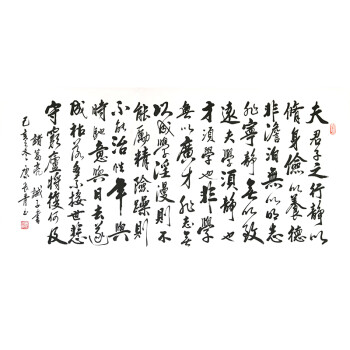 夫君子之行静以
脩身儉以養德
非澹泊無以明志
非寧静無以致
遠夫學須静也
才須學也非學
無以廣才非志無
以成學淫漫則不
能勵精險躁則
不能治性年與
時馳意與日去遂
成枯落多不接世悲
守窮廬將復何及
諸葛亮誡子書
己亥冬